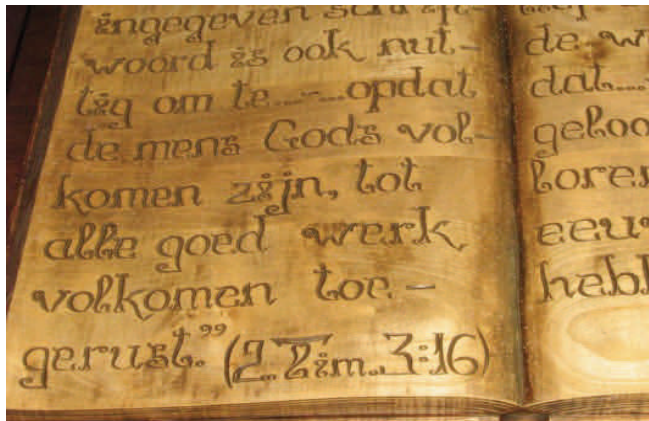 ingegeven schrift-
woord is ook nut-
tig om te...-...opdat
de mens Gods vol-
komen zijn, tot
alle goed werk
volkomen toe-
gerust.” (2 Tim. 3:16)
de
dat...-
geloo
loren
eeuw
hebb